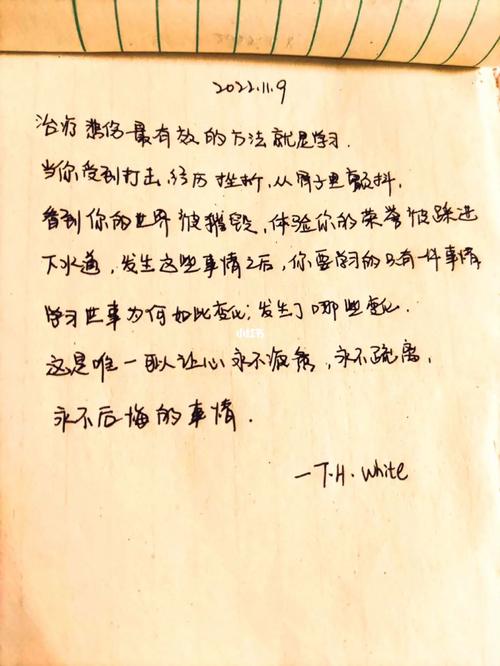 2022.11.9
治疗悲伤最有效的方法就是学习.
当你受到打击,经历挫折,从骨子里颤抖,
看到你的世界被摧毁,体验你的荣誉被踩进
下水道,发生这些事情之后,你要学习的只有一件事情
学习世事为何如此变化;发生了哪些变化.
这是唯一可以让心永不疲惫,永不疏离,
永不后悔的事情.
—T.H.White
小红书